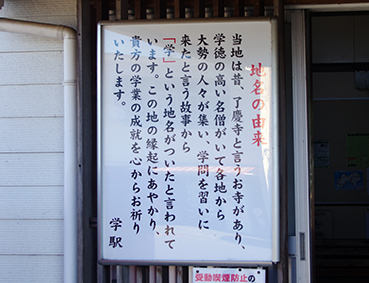 地名の由来
当地は昔、了慶寺と言うお寺があり、
学徳の高い名僧がいて各地から
大勢の人々が集い、学問を習いに
来たと言う故事から
「学」という地名がついたと言われて
います。この地の縁起にあやかり、
貴方の学業の成就を心からお祈り
いたします。
学駅
受動喫煙防止の